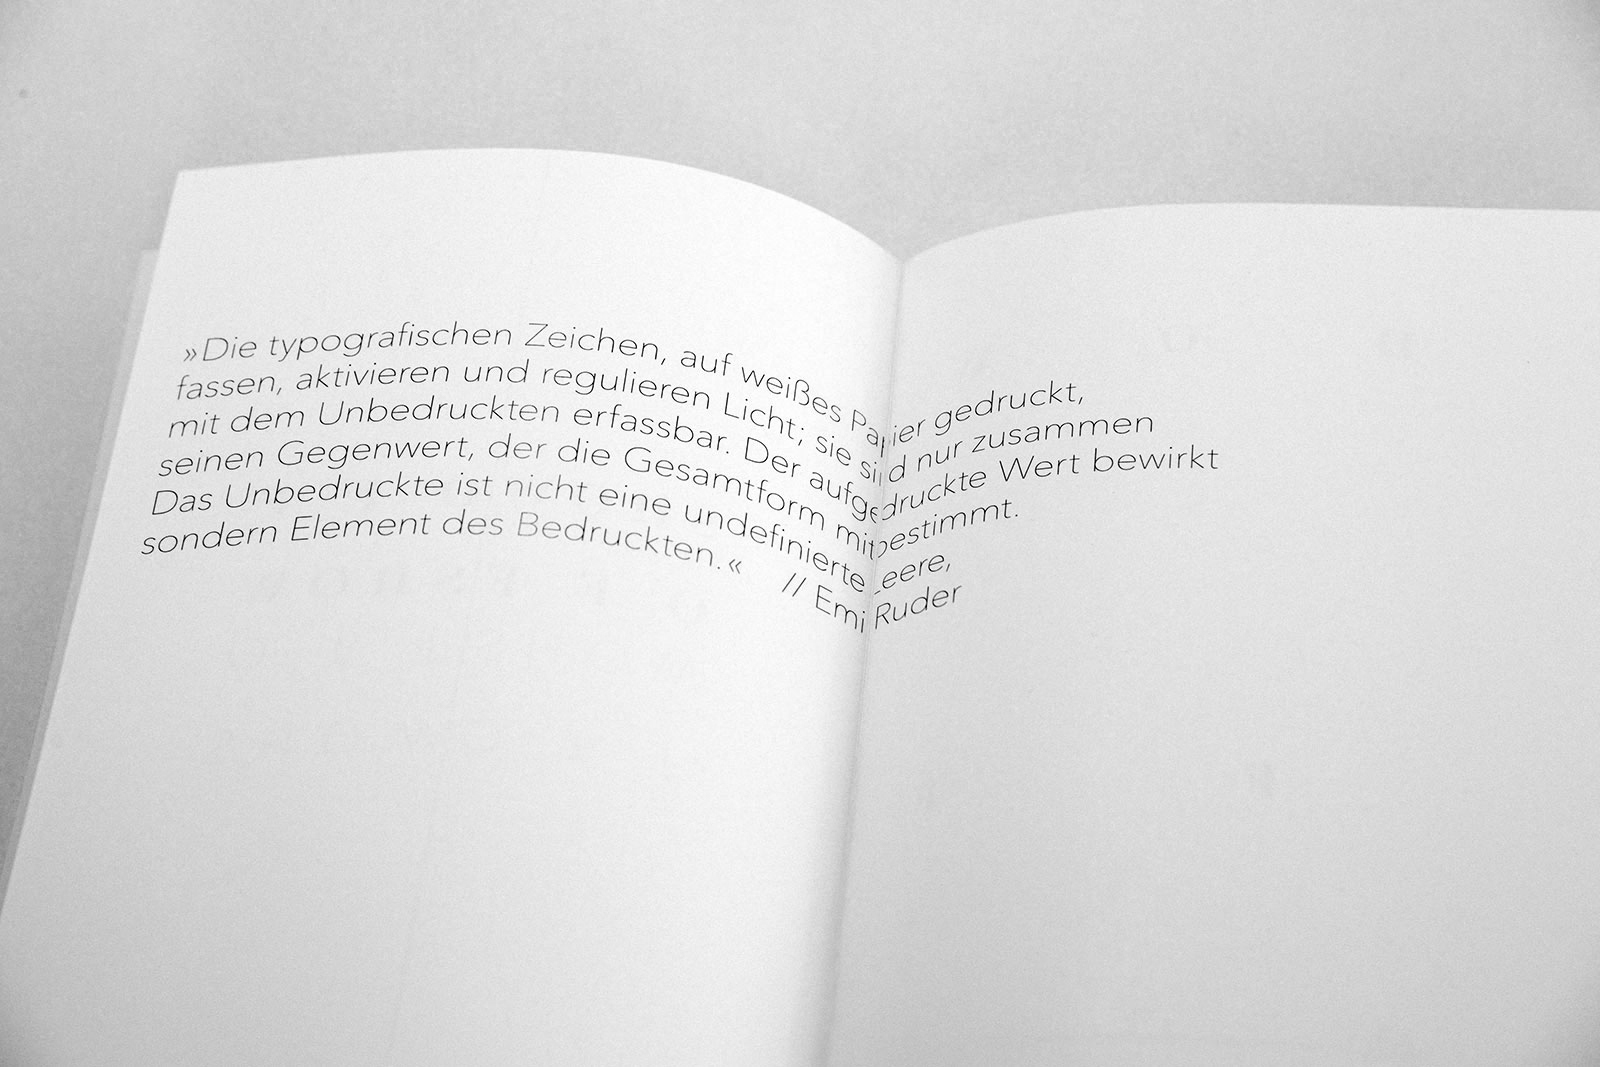 »Die typografischen Zeichen, auf weißes Papier gedruckt,
fassen, aktivieren und regulieren Licht; sie sind nur zusammen
mit dem Unbedruckten erfassbar. Der aufgedruckte Wert bewirkt
seinen Gegenwert, der die Gesamtform mitbestimmt.
Das Unbedruckte ist nicht eine undefinierte Leere,
sondern Element des Bedruckten.« // Emil Ruder